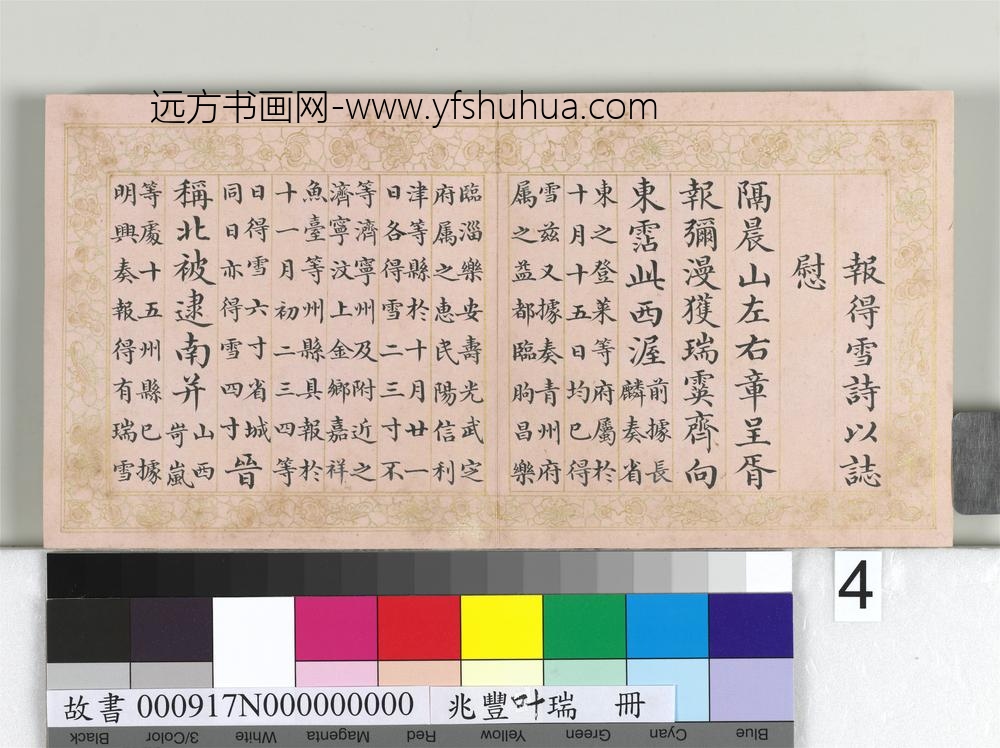 远方书画网-www.yfshuhua.com
報得雪詩以誌
慰
隔晨山左右章呈胥
報彌漫獲瑞霙齊向
東霑此西渥前據長
麟奏省
東之登萊等府屬於
十月十五日均已得
雪茲又據奏青州府
属之益都臨朐昌樂
臨淄樂安壽光武定
府属之惠民陽信利
津等縣於十月廿一
日各得雪二三寸不
等濟寧州及附近之
濟寧汶上金鄉嘉祥
魚臺等州縣具報於
十一月初二三四等
日得雪六寸省城
同日亦得雪四寸晉
稱北被逮南并山西
岢嵐
等處十五州縣已據
明興奏報得有瑞雪
4
故書 000917N000000000 兆豐叶瑞 冊
Black 3/Color White Magenta Red Yellow Green Cyan Blue